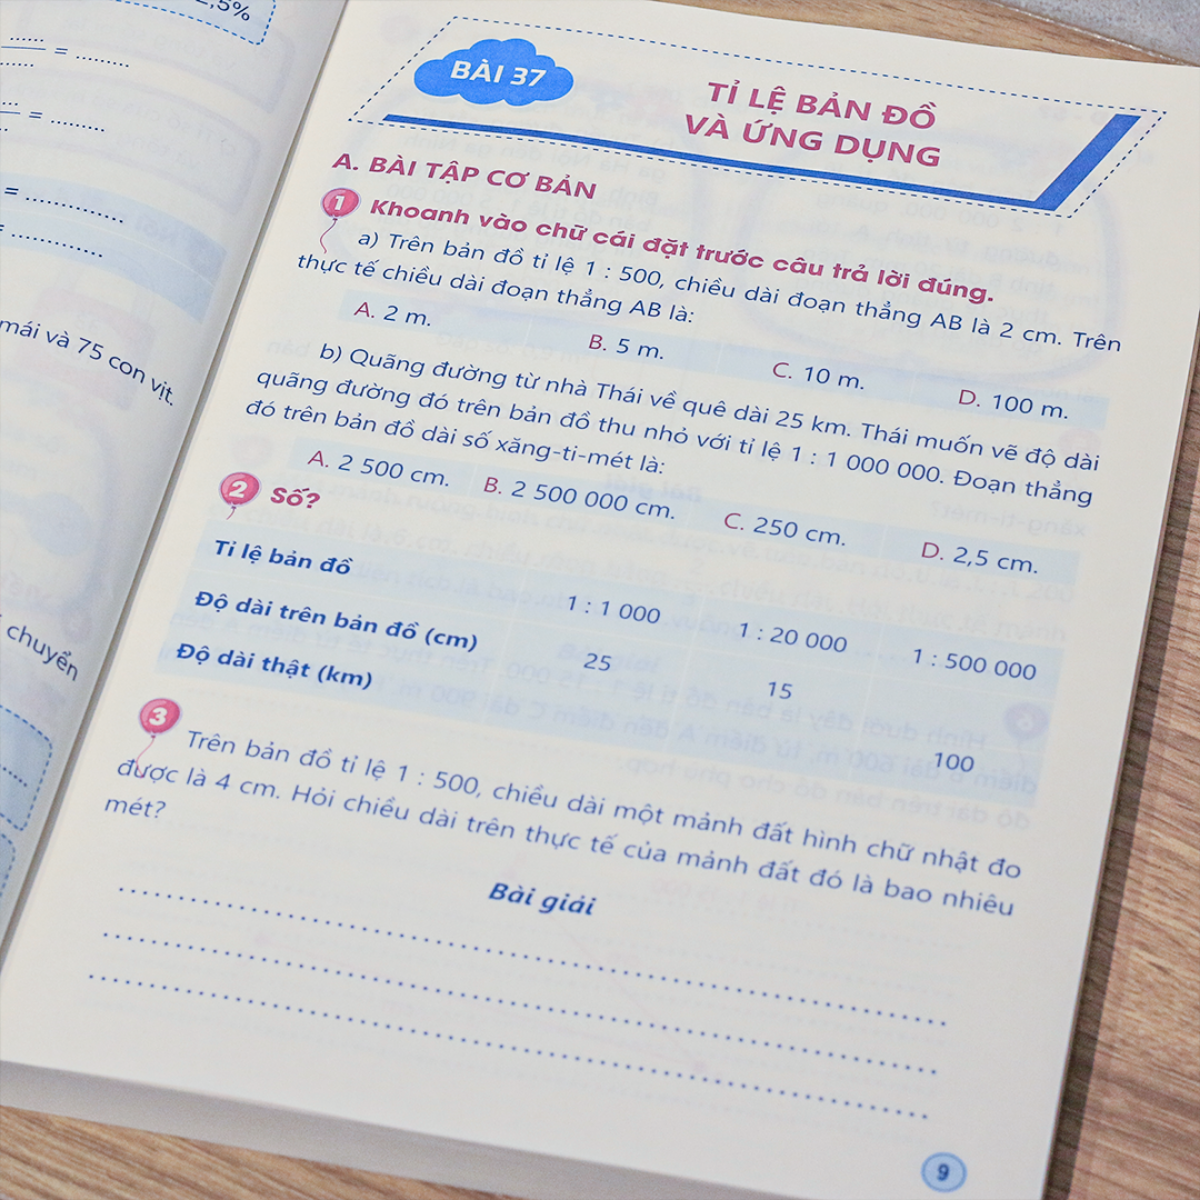 2,5%
...... = .........
......
... = .........
= ..............
= .............
mái và 75 con vịt.
chuyển
BÀI 37
TỈ LỆ BẢN ĐỒ
VÀ ỨNG DỤNG
A. BÀI TẬP CƠ BẢN
1 Khoanh vào chữ cái đặt trước câu trả lời đúng.
a) Trên bản đồ tỉ lệ 1 : 500, chiều dài đoạn thẳng AB là 2 cm. Trên
thực tế chiều dài đoạn thẳng AB là:
A. 2 m. B. 5 m. C. 10 m. D. 100 m.
b) Quãng đường từ nhà Thái về quê dài 25 km. Thái muốn vẽ độ dài
quãng đường đó trên bản đồ thu nhỏ với tỉ lệ 1 : 1 000 000. Đoạn thẳng
đó trên bản đồ dài số xăng-ti-mét là:
A. 2 500 cm. B. 2 500 000 cm. C. 250 cm. D. 2,5 cm.
2 Số?
Tỉ lệ bản đồ 1 : 1 000 1 : 20 000 1 : 500 000
Độ dài trên bản đồ (cm) 25 15
Độ dài thật (km) 100
3 Trên bản đồ tỉ lệ 1 : 500, chiều dài một mảnh đất hình chữ nhật đo
được là 4 cm. Hỏi chiều dài trên thực tế của mảnh đất đó là bao nhiêu
mét?
Bài giải
9